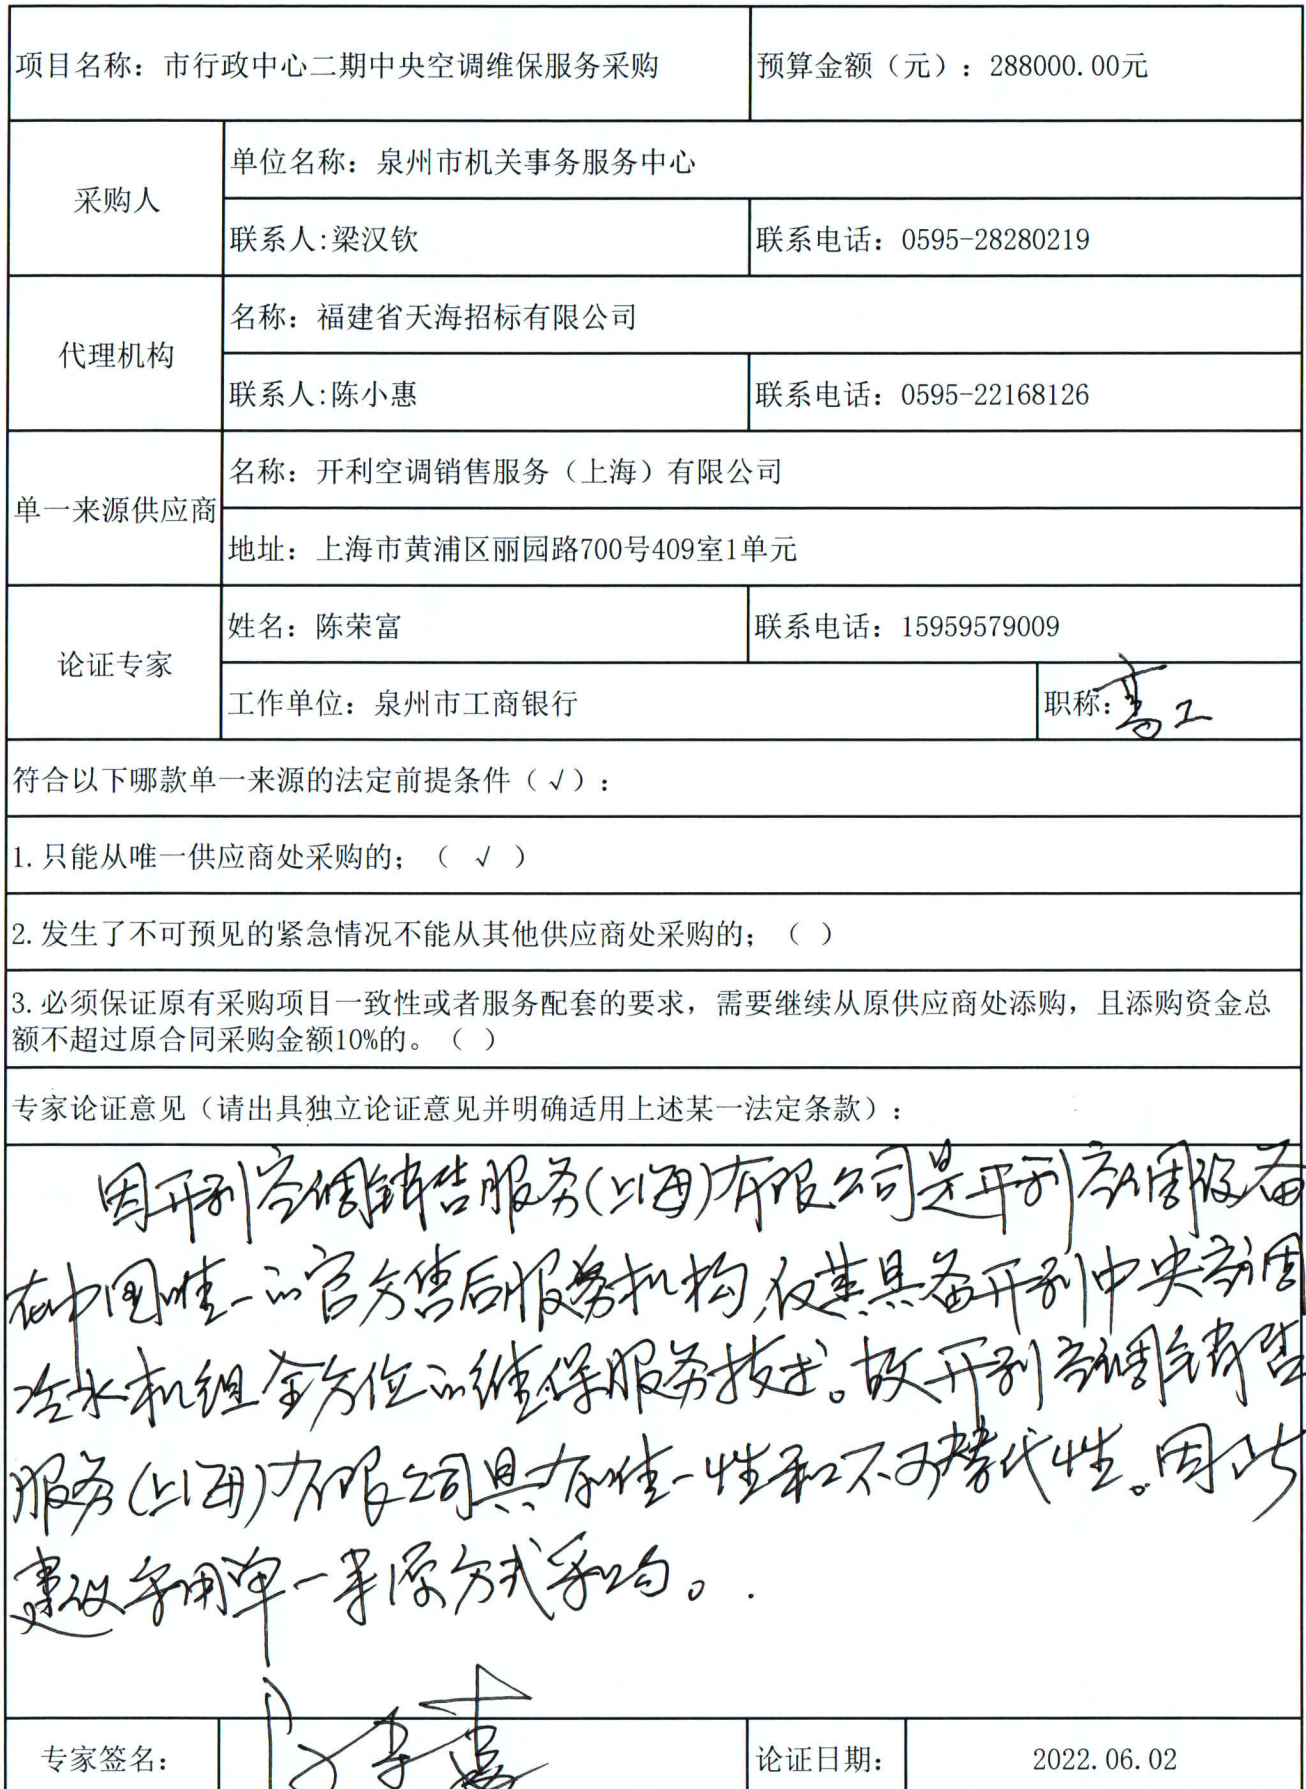 项目名称：市行政中心二期中央空调维保服务采购
预算金额（元）：288000.00元
采购人
单位名称：泉州市机关事务服务中心
联系人:梁汉钦
联系电话：0595-28280219
代理机构
名称：福建省天海招标有限公司
联系人:陈小惠
联系电话：0595-22168126
单一来源供应商
名称：开利空调销售服务（上海）有限公司
地址：上海市黄浦区丽园路700号409室1单元
论证专家
姓名：陈荣富
联系电话：15959579009
工作单位：泉州市工商银行
职称：高工
符合以下哪款单一来源的法定前提条件（√）：
1.只能从唯一供应商处采购的；（ √ ）
2.发生了不可预见的紧急情况不能从其他供应商处采购的；（ ）
3.必须保证原有采购项目一致性或者服务配套的要求，需要继续从原供应商处添购，且添购资金总
额不超过原合同采购金额10%的。（ ）
专家论证意见（请出具独立论证意见并明确适用上述某一法定条款）：
因开利空调销售服务(上海)有限公司是开利空调设备
在中国唯一的官方售后服务机构,仅其具备开利中央空调
冷水机组全方位的维保服务技术。故开利空调销售
服务(上海)有限公司具有唯一性和不可替代性。因此
建议采用单一来源方式采购。
专家签名：
陈荣富
论证日期：
2022.06.02